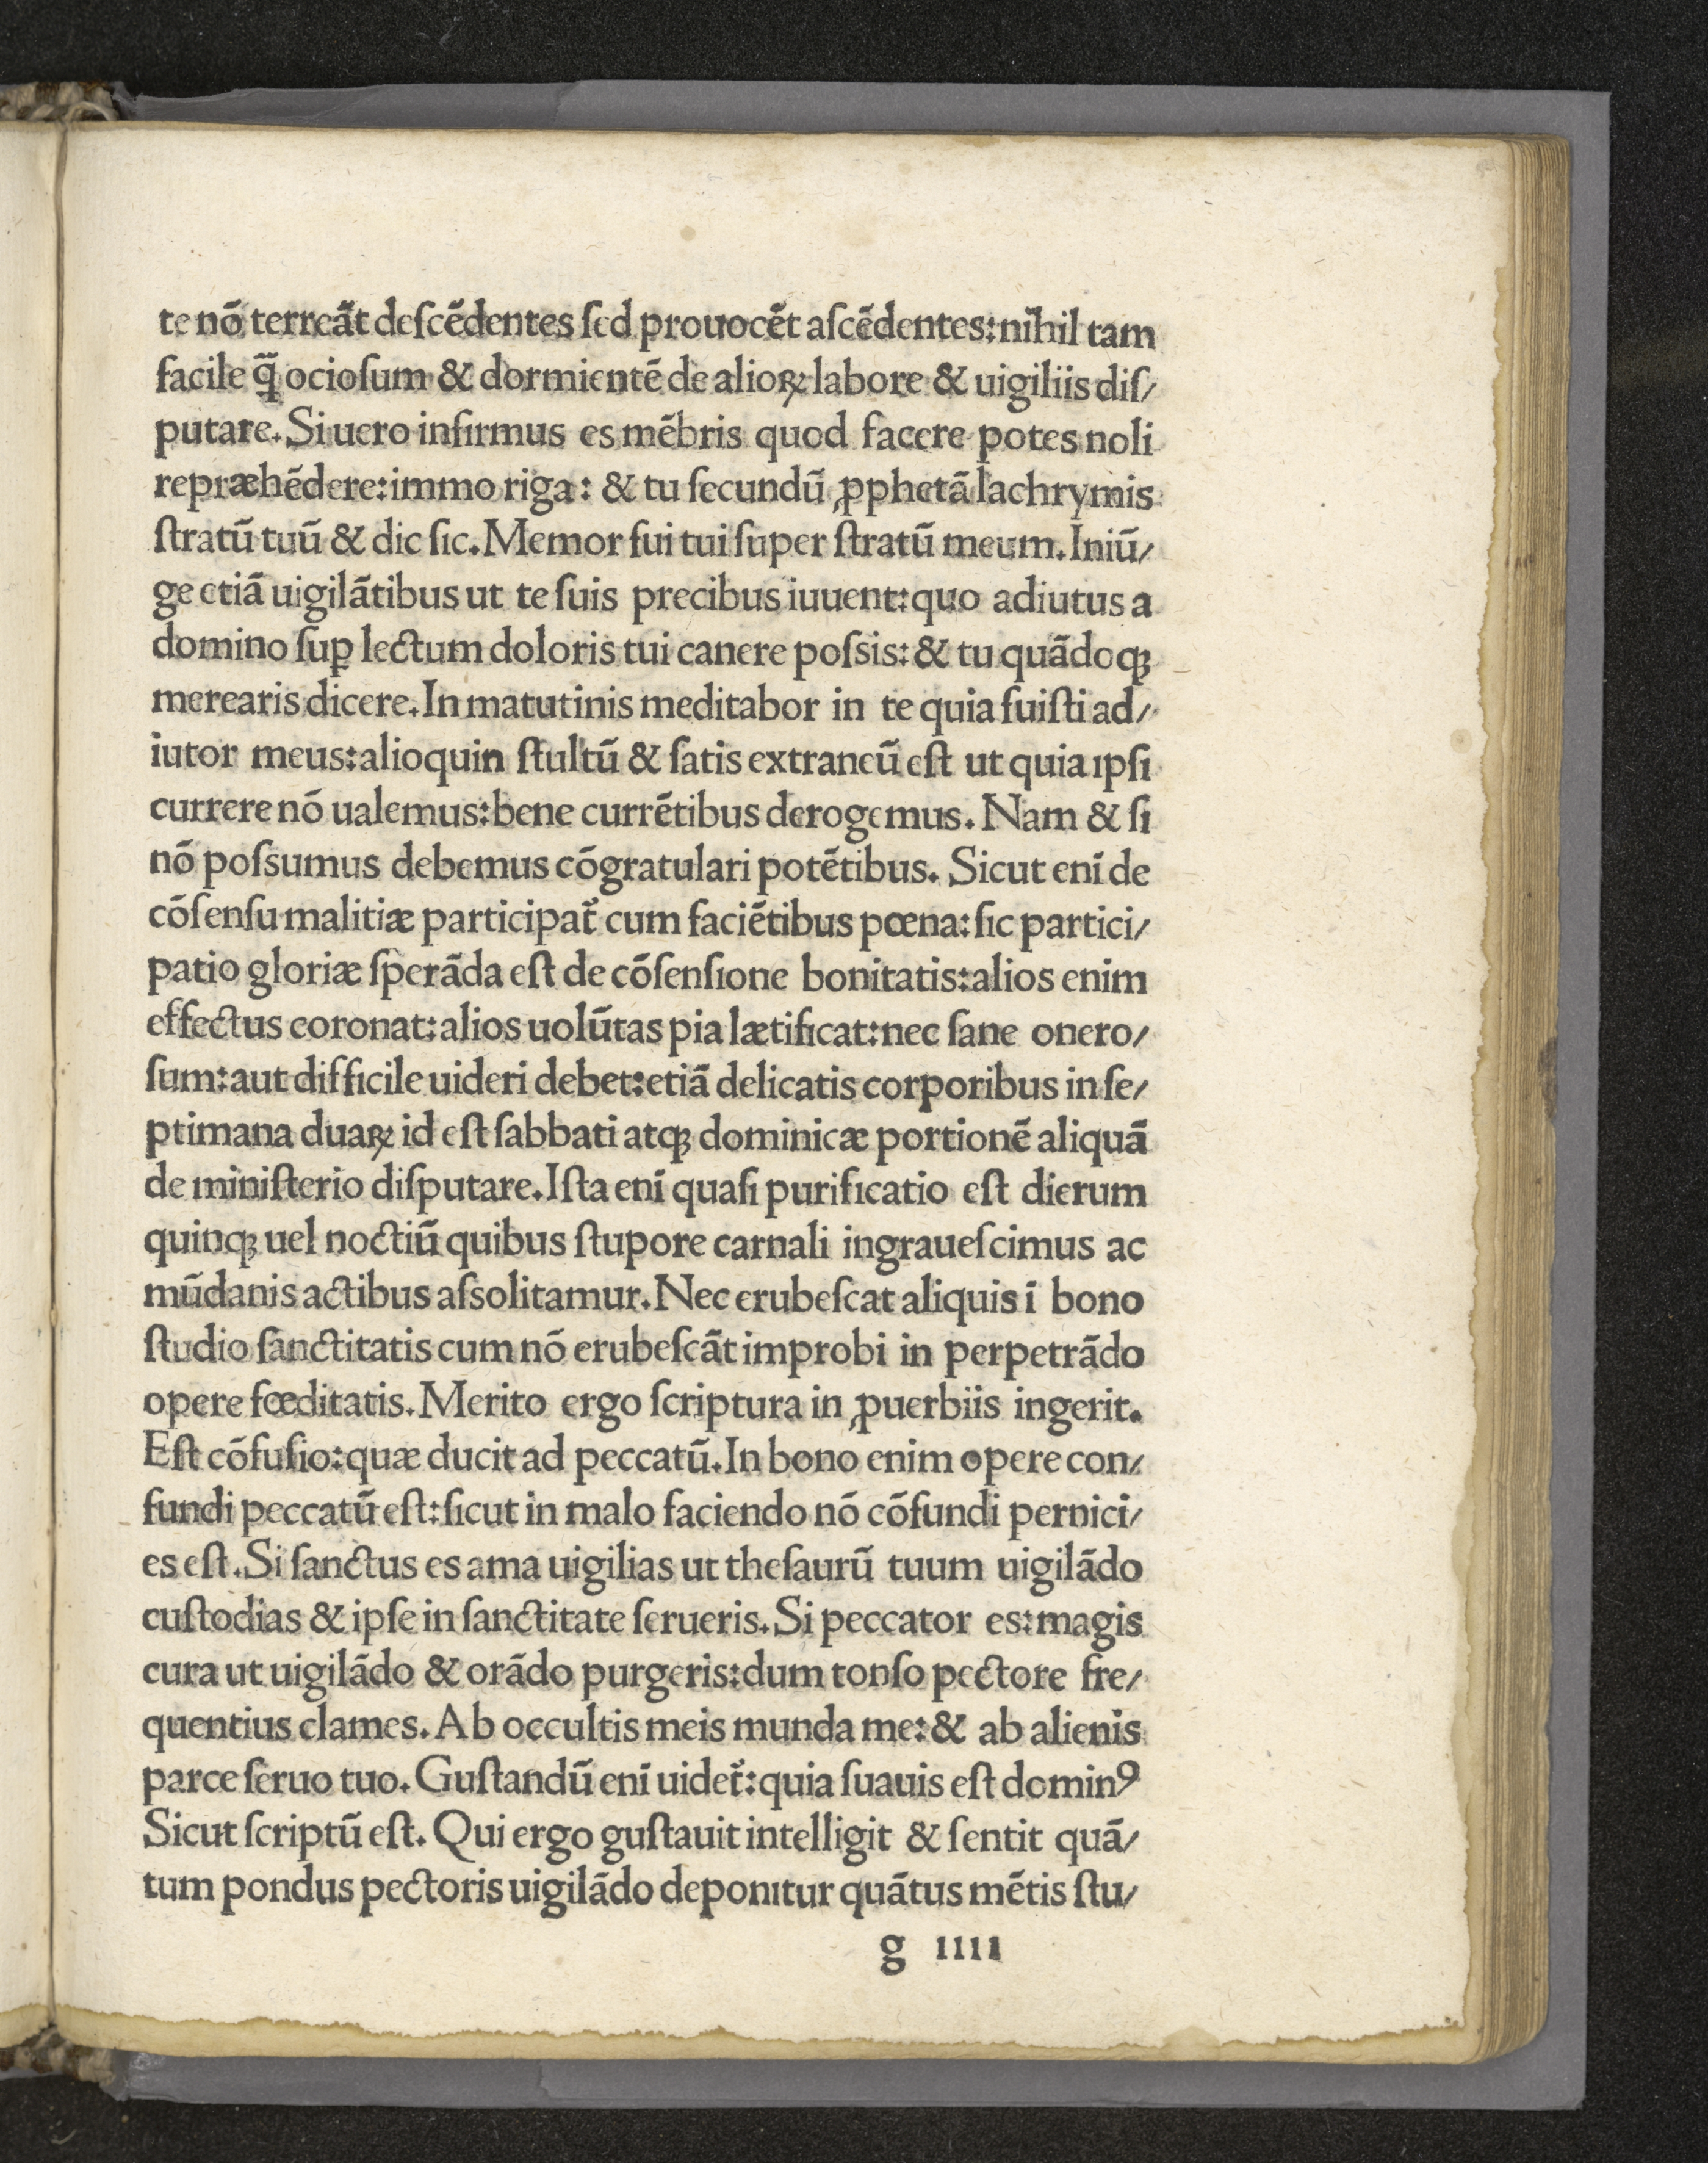 te nō terreāt deſcēdentes ſed prouocēt aſcēdentes:nihil tam
facile q̄̄ ocioſum & dormientē de alioꝝ labore & uigiliis diſ/
putare. Si uero infirmus es mēbris quod facere potes noli
repræhēdere:immo riga: & tu ſecundū ꝓphetā lachrymis
ſtratū tuū & dic ſic. Memor fui tui ſuper ſtratū meum. Iniū/
ge etiā uigilātibus ut te ſuis precibus iuuent:quo adiutus a
domino ſuꝑ lectum doloris tui canere poſsis:& tu quādoqꝫ
merearis dicere. In matutinis meditabor in te quia fuiſti ad/
iutor meus:alioquin ſtultū & ſatis extraneū eſt ut quia ıpſi
currere nō ualemus:bene currētibus derogemus. Nam & ſi
nō poſsumus debemus cōgratulari potētibus. Sicut enī de
cōſenſu malitiæ participat᷑ cum faciētibus pœna:ſic partici/
patio gloriæ ſperāda eſt de cōſenſione bonitatis:alios enim
effectus coronat:alios uolūtas pia lætificat:nec ſane onero/
ſum:aut difficile uideri debet:etiā delicatis corporibus in ſe/
ptimana duaꝝ id eſt ſabbati atqꝫ dominicæ portionē aliquā
de miniſterio diſputare. Iſta enī quaſi purificatio eſt dierum
quinqꝫ uel noctiū quibus ſtupore carnali ingraueſcimus ac
mūdanis actibus aſsolitamur. Nec erubeſcat aliquis ī bono
ſtudio ſanctitatis cum nō erubeſcāt improbi in perpetrādo
opere fœditatis. Merito ergo ſcriptura in ꝓuerbiis ingerit.
Eſt cōfuſio:quæ ducit ad peccatū. In bono enim opere con/
fundi peccatū eſt:ſicut in malo faciendo nō cōfundi pernici/
es eſt. Si ſanctus es ama uigilias ut theſaurū tuum uigilādo
cuſtodias & ipſe in ſanctitate ſerueris. Si peccator es:magis
cura ut uigilādo & orādo purgeris:dum tonſo pectore fre/
quentius clames. Ab occultis meis munda me:& ab alienis
parce ſeruo tuo. Guſtandū enī uidet᷑:quia ſuauis eſt dominꝰ
Sicut ſcriptū eſt. Qui ergo guſtauit intelligit & ſentit quā/
tum pondus pectoris uigilādo deponıtur quātus mētis ſtu/
g ıııı